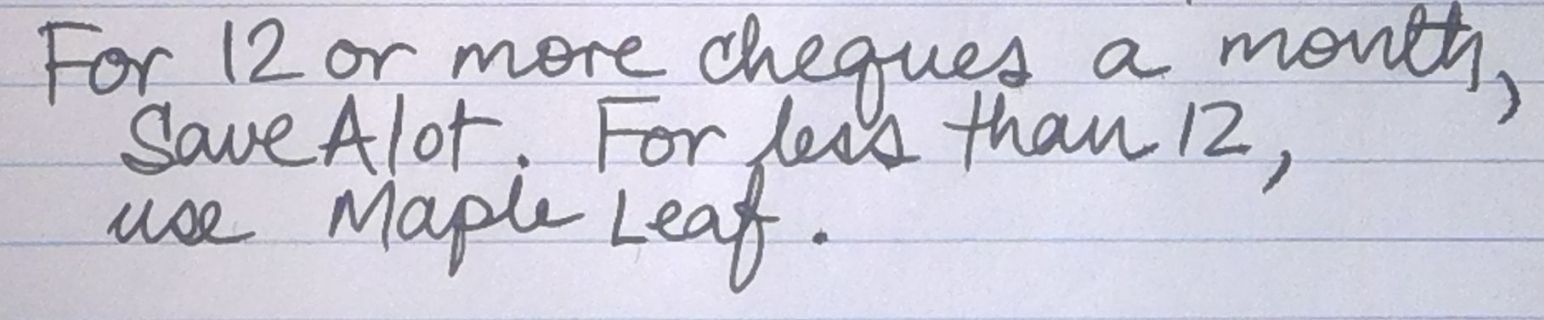 For 12 or more cheques a month,
SaveAlot. For less than 12,
use Maple Leaf.